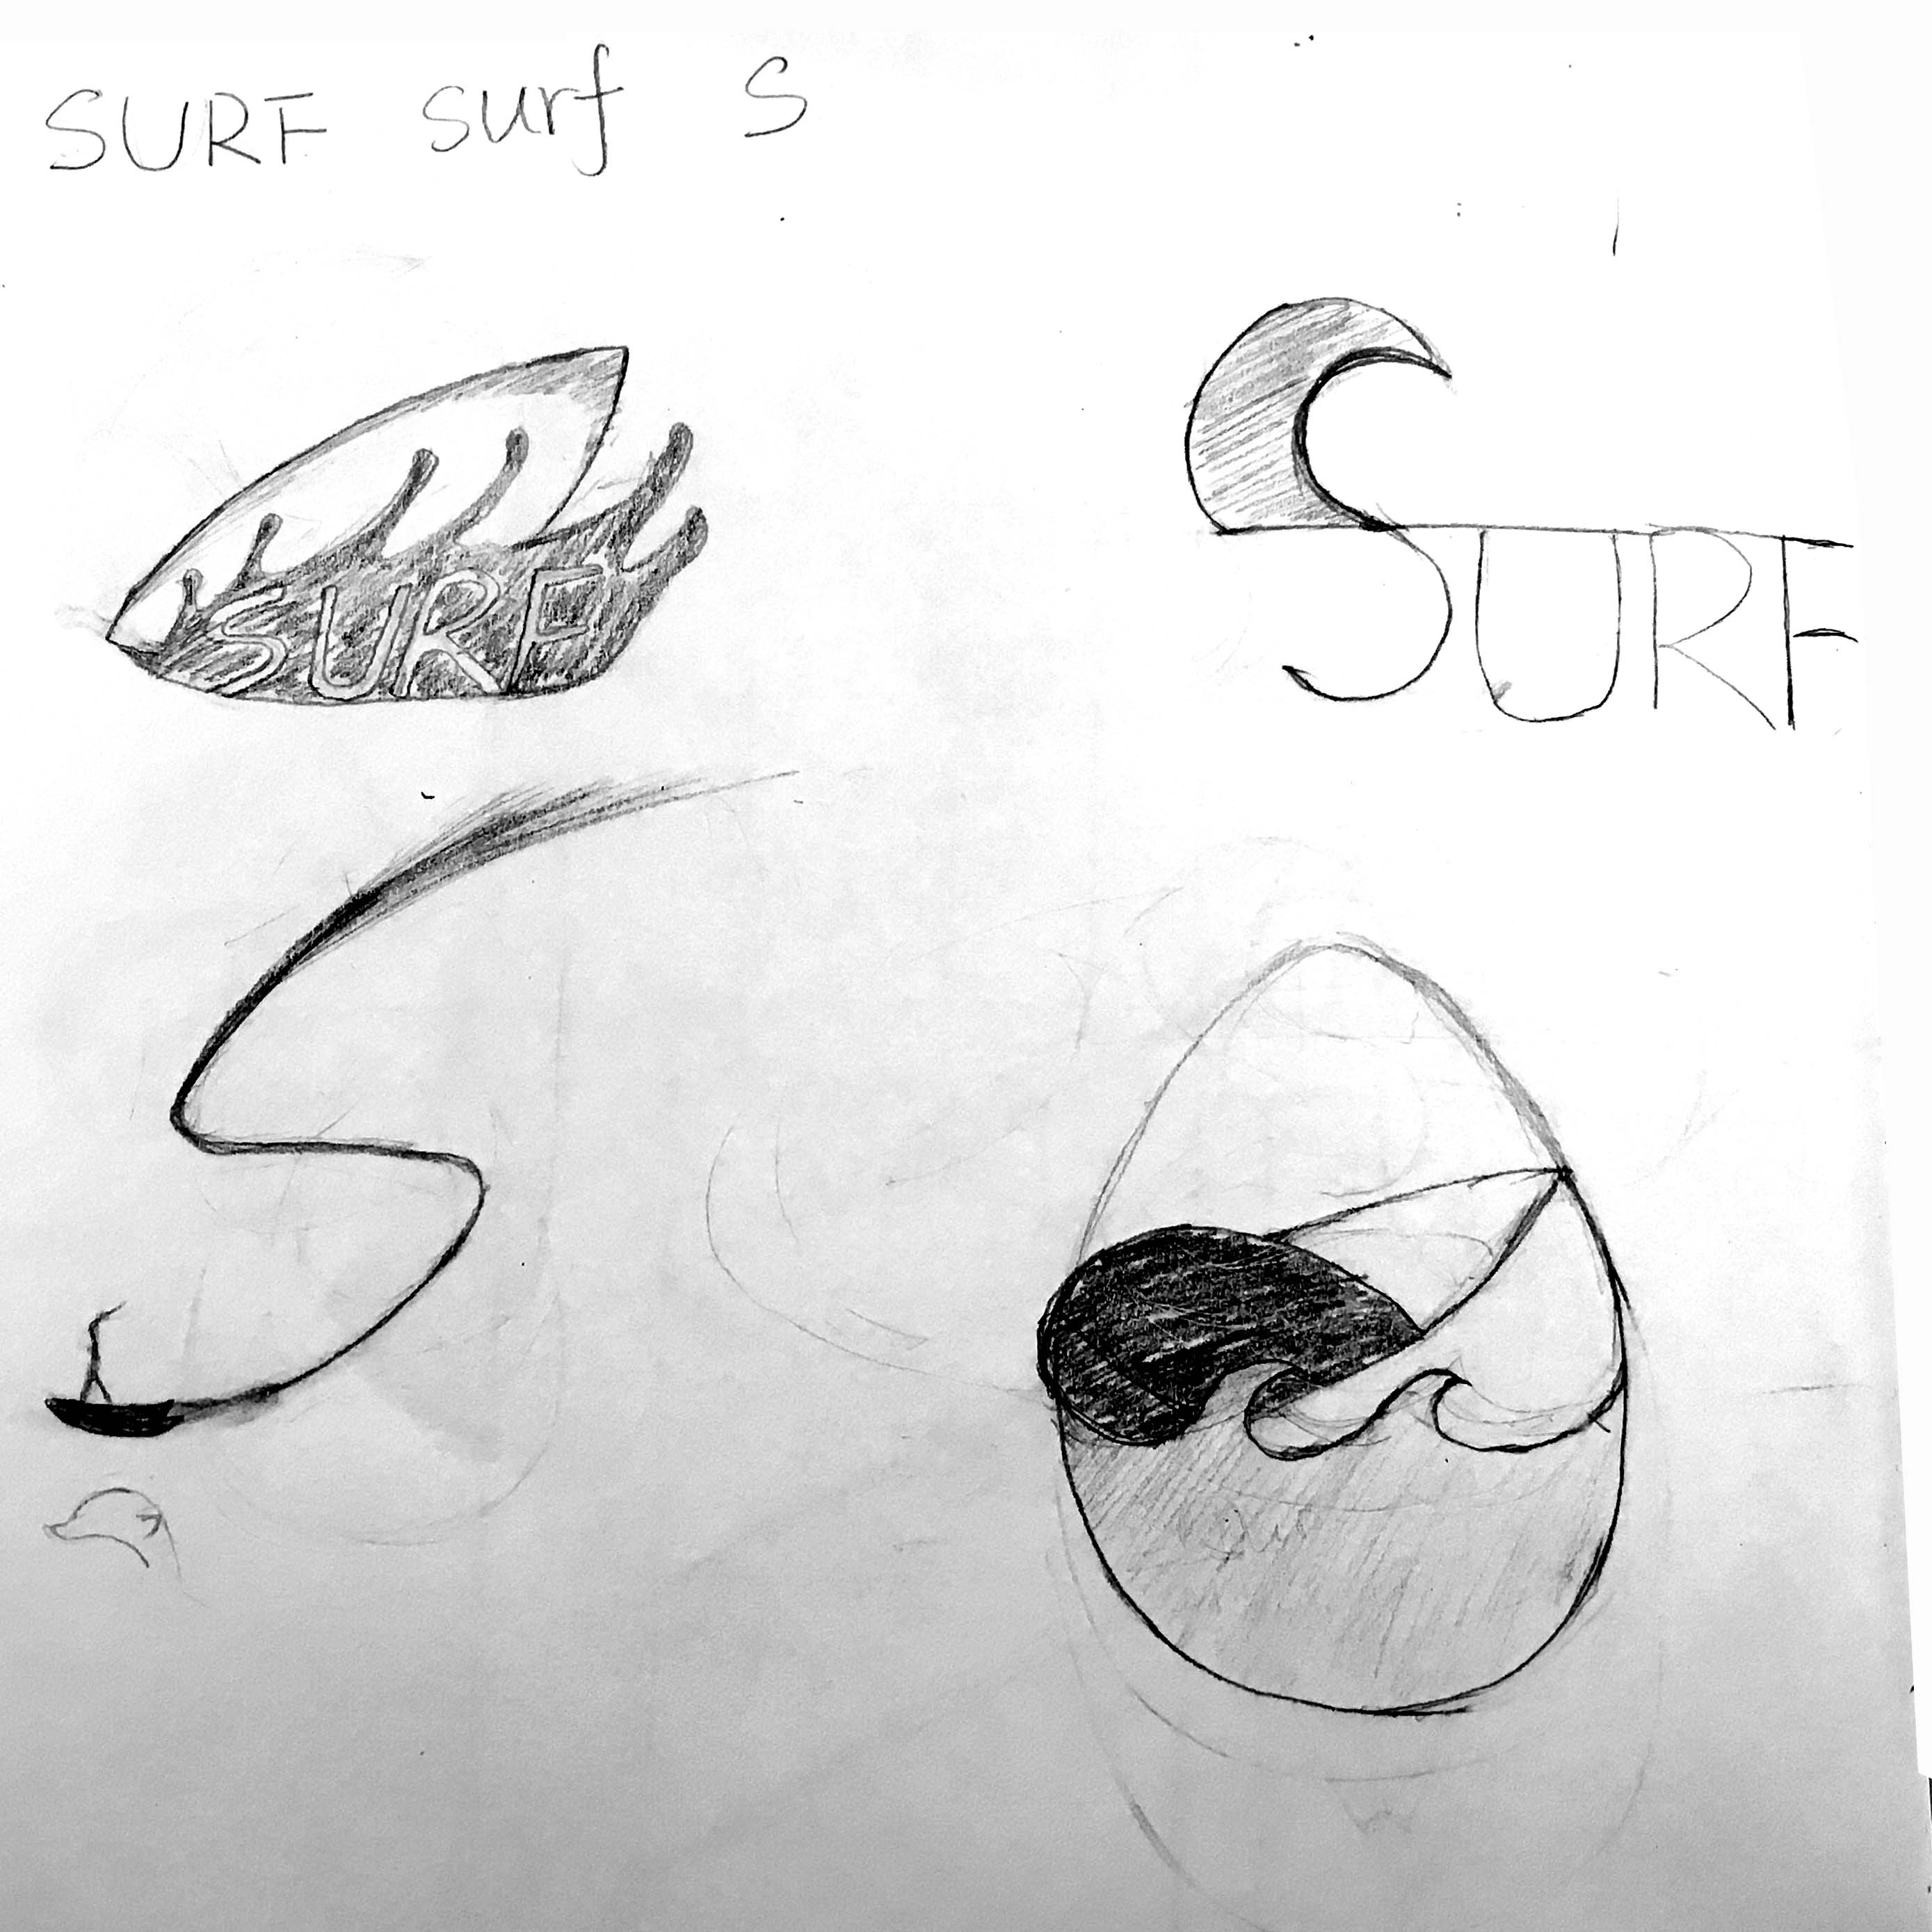 SURF surf S
SURF
SURF